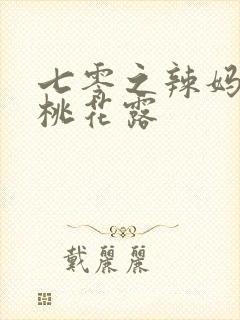 七零之辣妈
桃花露
戴麗麗